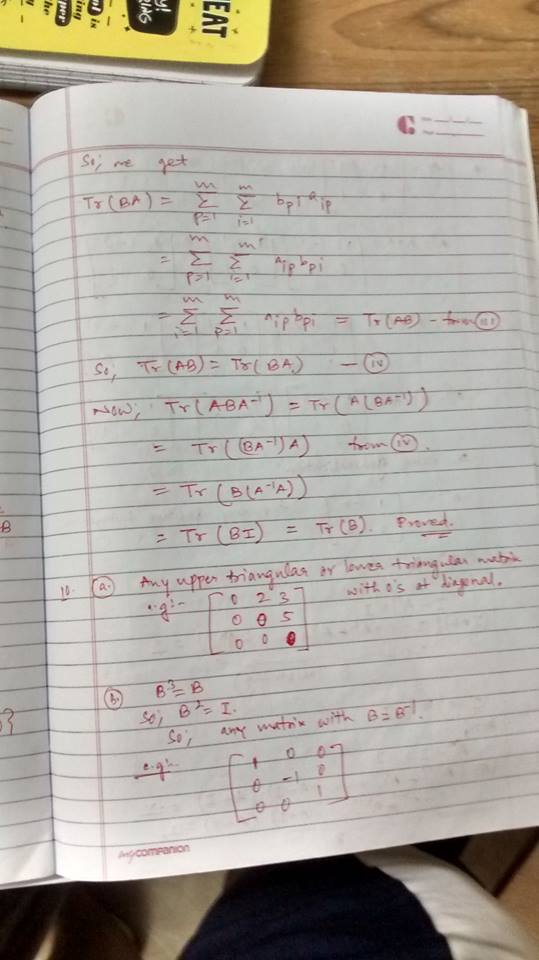 HEAT
So, we get
Tr(BA) = m Σ p=1 m Σ i=1 bpi aip
= m Σ p=1 m Σ i=1 aip bpi
= m Σ i=1 m Σ p=1 aip bpi = Tr(AB) - from (iii)
So, Tr(AB) = Tr(BA) — (iv)
Now, Tr(ABA⁻¹) = Tr(A(BA⁻¹))
= Tr((BA⁻¹)A) from (iv).
= Tr(B(A⁻¹A))
= Tr(BI) = Tr(B). Proved.
10. (a.) Any upper triangular or lower triangular matrix
with 0's at diagonal.
e.g:-
[0 2 3
0 0 5
0 0 0]
(b.) B³=B
So, B²=I.
So, any matrix with B=B⁻¹.
e.g:-
[1 0 0
0 -1 0
0 0 1]
mycompanion